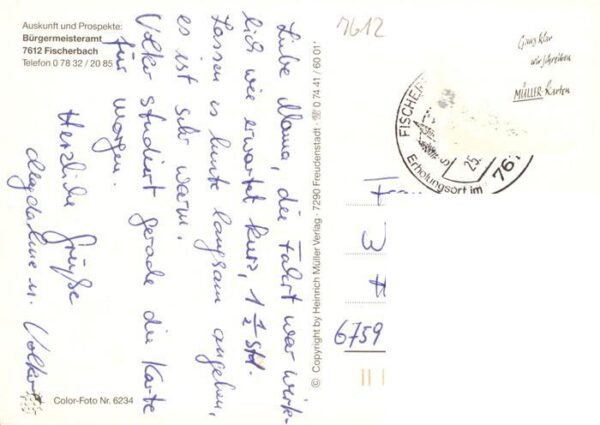 Auskunft und Prospekte:
Bürgermeisteramt
7612 Fischerbach
Telefon 0 78 32 / 20 85
7612
Ganz klar
wir schreiben
MÜLLER-Karten
Liebe Mama, die Fahrt war wirk-
lich wie erwartet kurz, 1 1/2 Std.
Lassen es heute langsam angehen,
es ist sehr warm.
Volker studiert gerade die Karte
für morgen.
Herzliche Grüße
Magdalena u. Volker
© Copyright by Heinrich Müller Verlag · 7290 Freudenstadt · ☏ 0 74 41 / 60 01
FISCHER
25.
761
Erholungsort im
6759
Color-Foto Nr. 6234